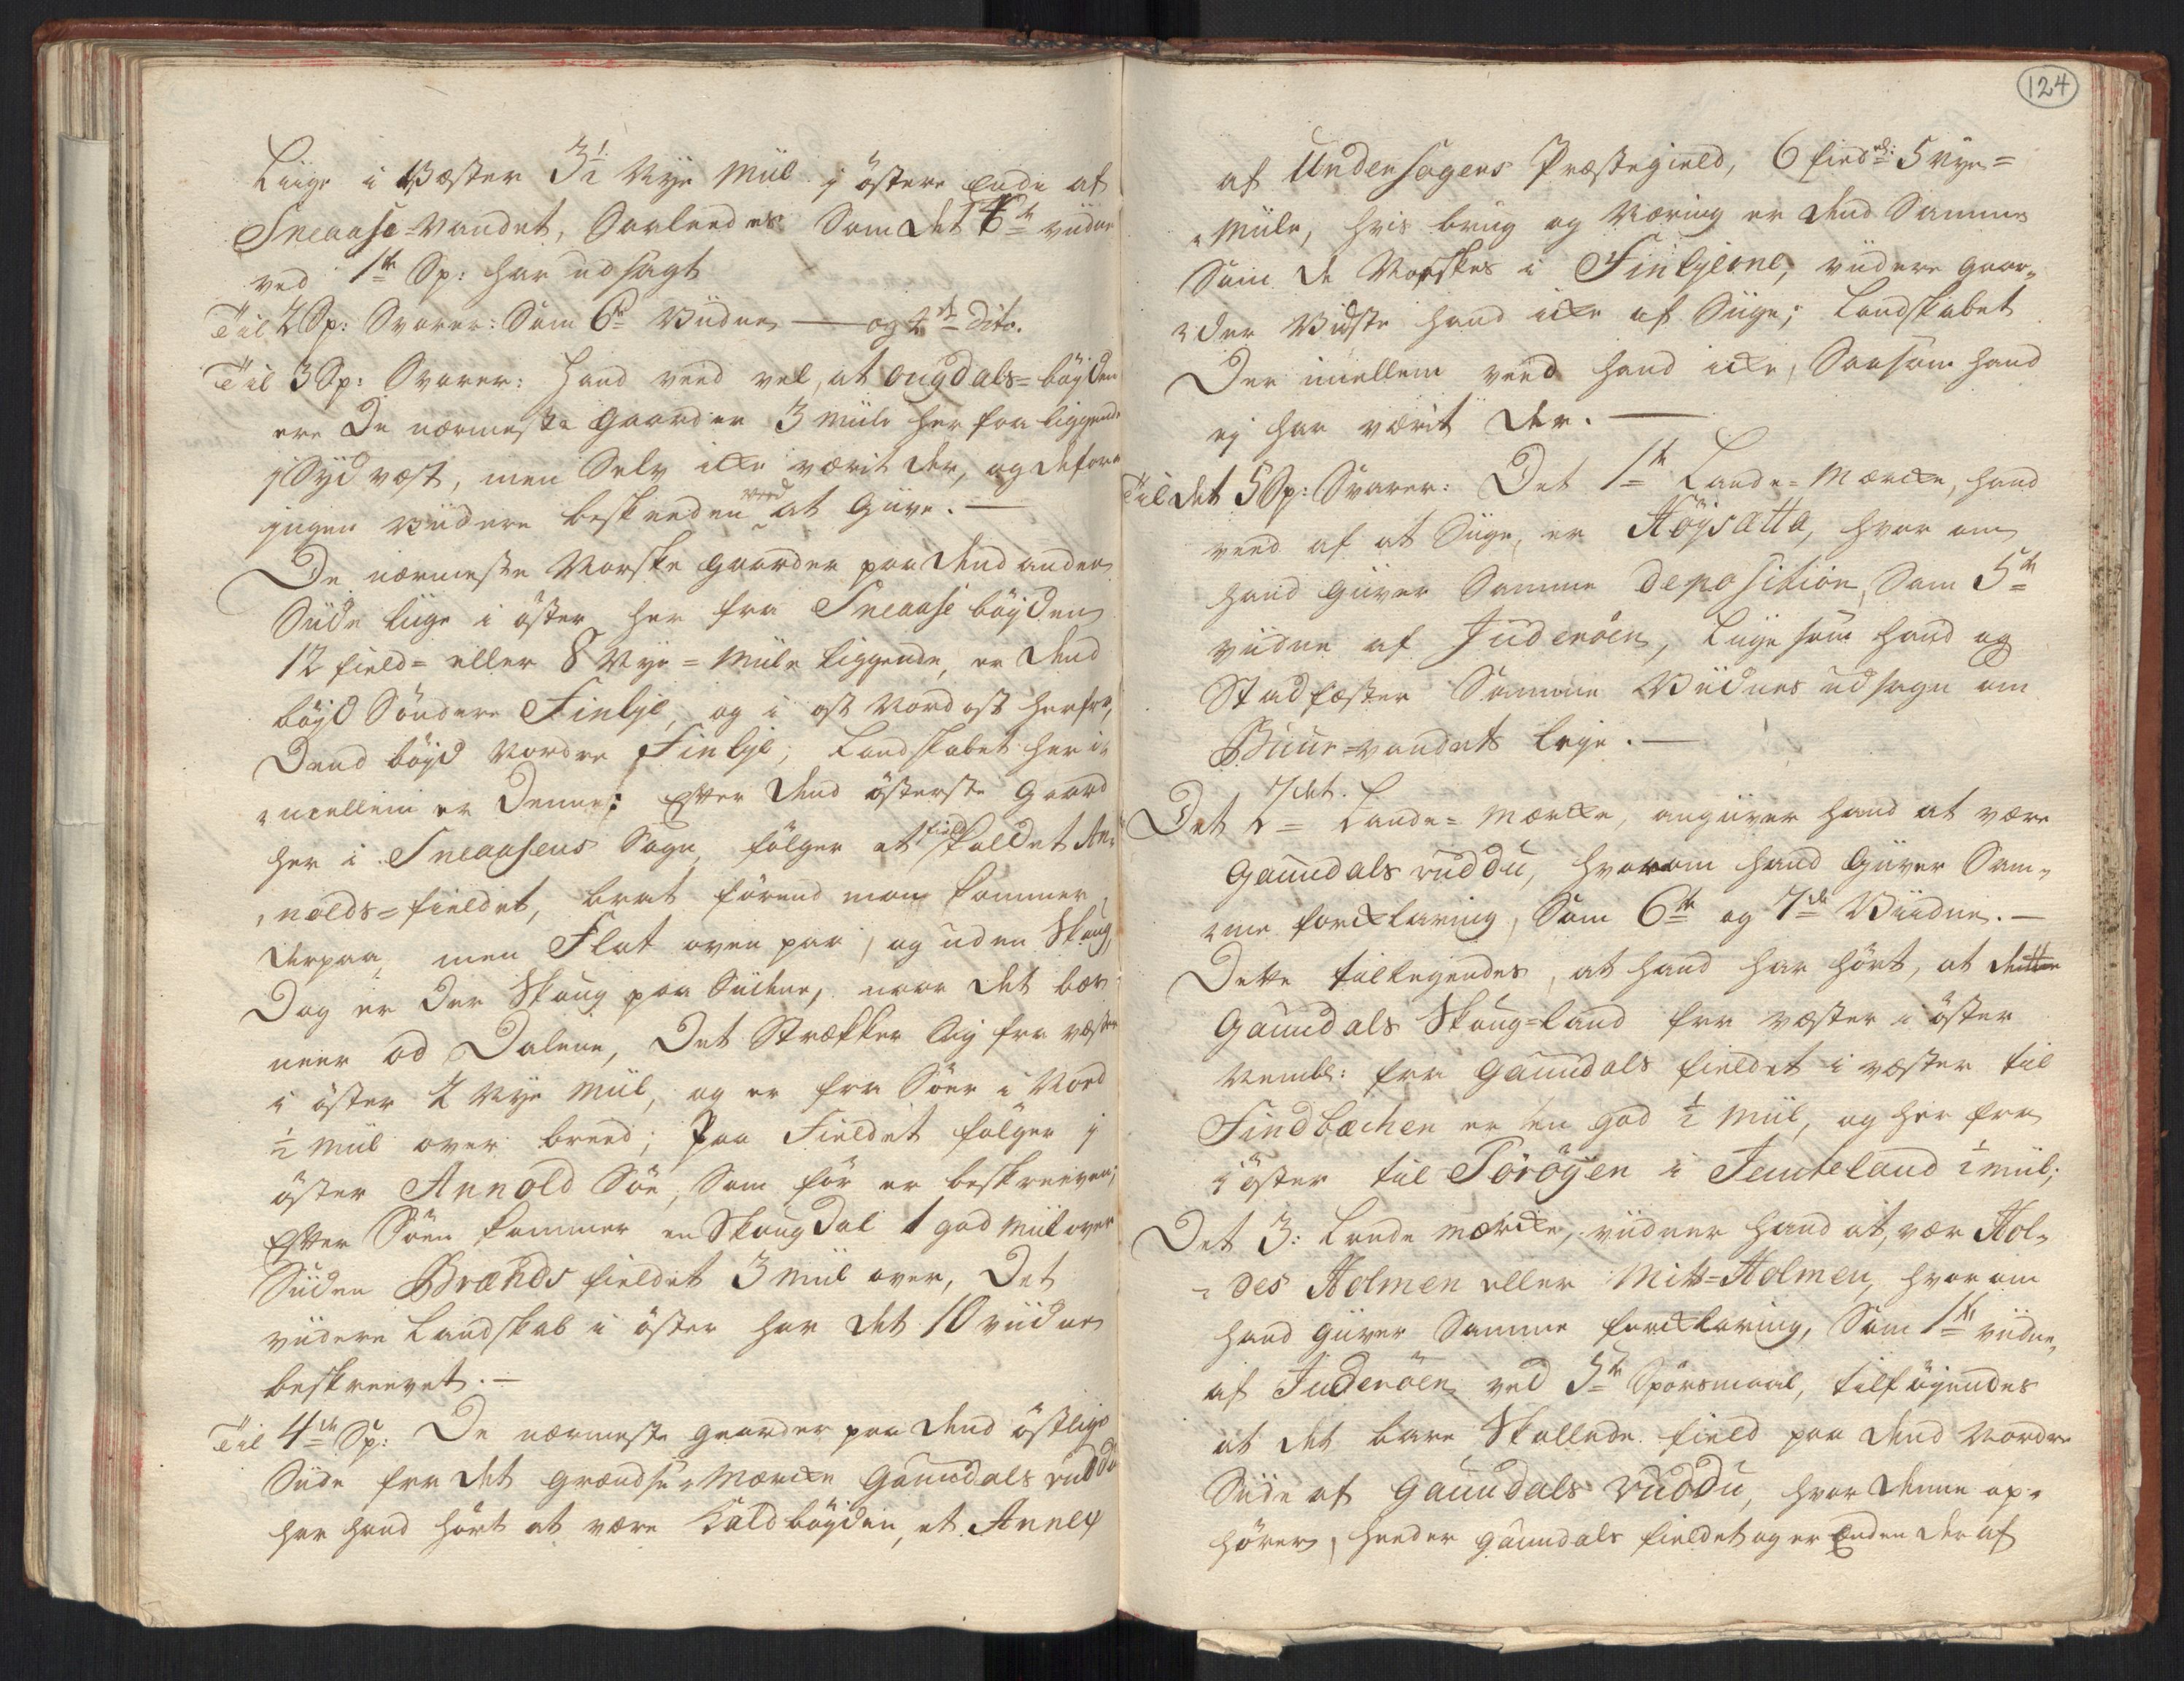 Liige i Væster 3½ Nye Miil i östere Ende af
Sneaase-Vandet, Saaleedes Som det 4de viidne
ved 1te Sp: har udsagt
Til 2 Sp: Svarer: Som 6te Viidne — og 2det dito.
Til 3 Sp: Svarer: Hand veed vel, at Ougdals-böyden
ere De nærmeste gaarder 3 Miile herfra liggende
i Sydvæst, men Selv icke værit der, og derfore
ingen viidere beskeeden veed at Giive. —
De nærmeste Norske gaarder paa dend anden
Siide liige i öster her fra Sneaase böyden
12 field- eller 8 Nye-Miile liggende, er dend
böyd Söndere Finlje, og i ost Nordost herfra,
Dend böyd Nordre Finlje; Landskabet her i-
mellem er Denne: Efter dend österste Gaard
her i Sneaasens Sogn, fölger et field kaldet An-
nolds-fieldet, brat förend man kommer
derpaa, men Flat oven paa, og uden Skoug,
Dog er der Skoug paa Siiderne, naar det bær
neer ad Dalene, Det Strækker sig fra væster
i öster 2 Nye Miil, og er fra Söer i Nord
½ Miil over breed; Paa Fieldet fölger i
öster Annold Söe, Som för er beskreeven;
Efter Söen kommer en Skoug Dal 1 god Miil over
Siiden Brænds fieldet 3 Miil over, Det
viidere Landskab i öster har det 10 viidne
beskreevet. —
Til 4de Sp: De nærmeste gaarder paa dend östlige
Siide fra det Grændse-Mærcke Gaundals ruddu
har hand hört at være Kaldböyden, et Annex
124
af Undersagers Præstegield, 6 field- 5 Nye-
Miile, hvis brug og Næring er dend Samme
Som de Norskes i Finljerne, viidere gaar-
der Vidste hand icke af Siige; Landskabet
Der imellem veed hand icke, Saasom hand
ej har værit der. —
Til det 5 Sp: Svarer: Det 1te Lande-Mærcke, hand
veed af at Siige, er Höysatta, hvor om
hand giiver Samme Deposition, Som 5te
viidne af Inderöen, Liigesom hand og
Stadfæster Samme Viidnes udsagn om
Buur-vandets Leye. —
Det 2det Lande-Mærcke, angiiver hand at være
Gaundals ruddu, hvorom hand Giiver Sam-
me forcklaring, Som 6te og 7de Viidne. —
Dette tilleyendes, at hand har hört, at
Gaundals Skoug-Land fra væster i öster
Nembl: fra Gaundals fieldet i væster til
Findbæchen er en god ½ Miil, og her fra
i öster til Toröyen i Jemteland ½ Miil;
Det 3: Lande Mærcke, viidner hand at, vær Hol-
des Holmen eller Mitt-Holmen, hvorom
hand giiver Samme forcklaring, Som 1te viidne,
af Inderöen ved 5te Spörsmaal, tilföyendes
at det bare Skallede field paa dend Nordre
Siide af Gaundals ruddu, hvor denne op-
hörer, heeder Gaundals fieldet og er Enden der af